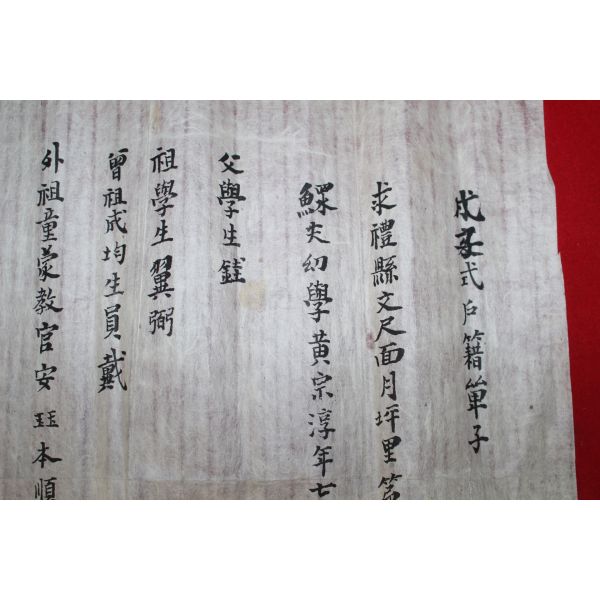 戊子式戶籍單子
求禮縣文尺面月坪里第
鰥夫幼學黃宗淳年七
父學生鋕
祖學生翼弼
曾祖成均生員戴
外祖童蒙教官安珏本順